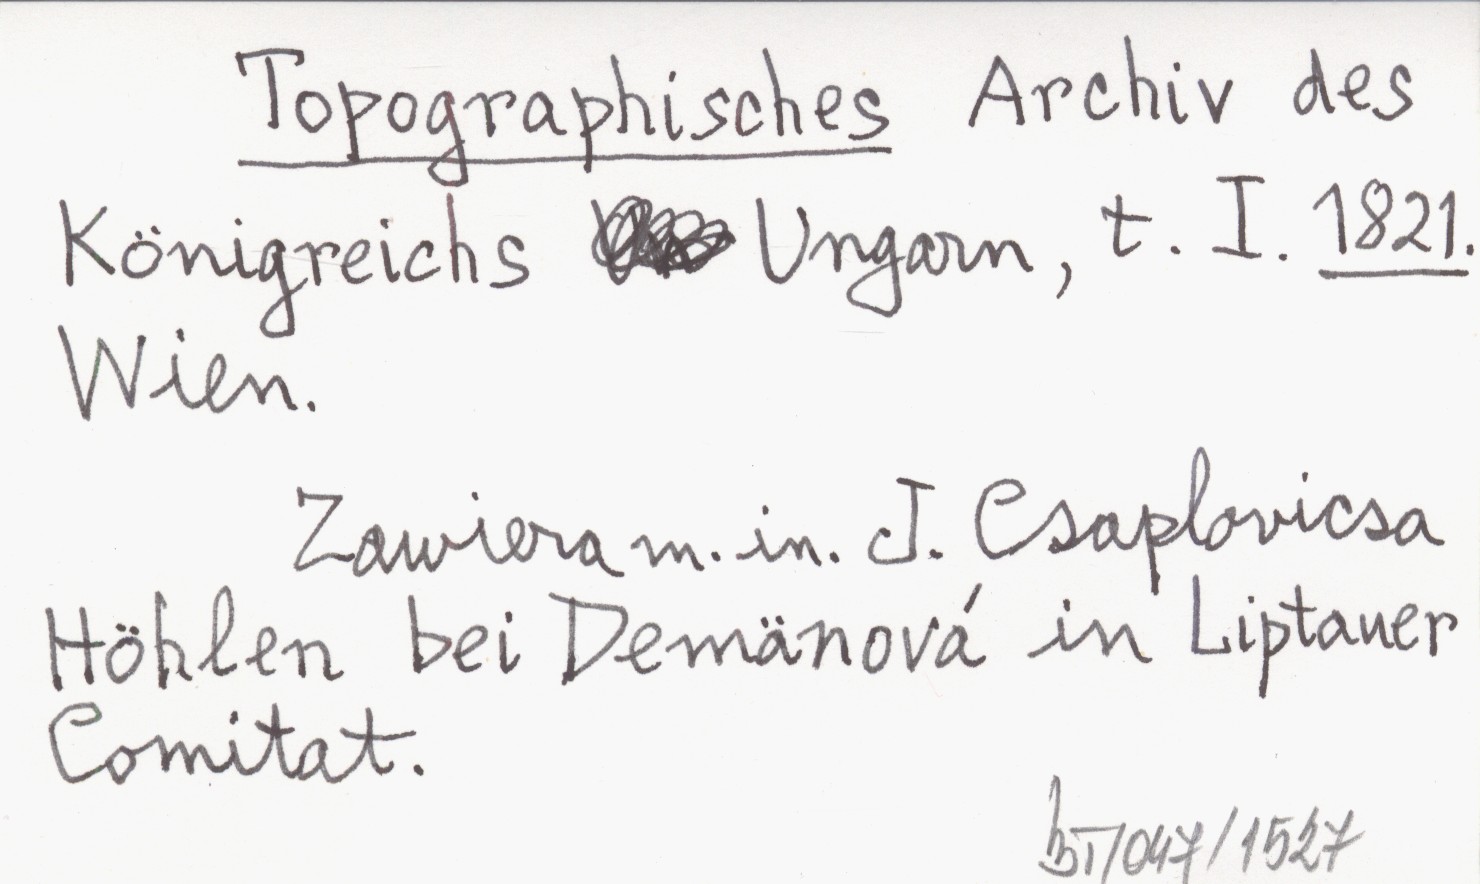 Topographisches Archiv des
Königreichs Ungarn, t. I. 1821.
Wien.
Zawiera m. in. J. Csaplovicsa
Höhlen bei Demänová in Liptauer
Comitat.
/047/1527